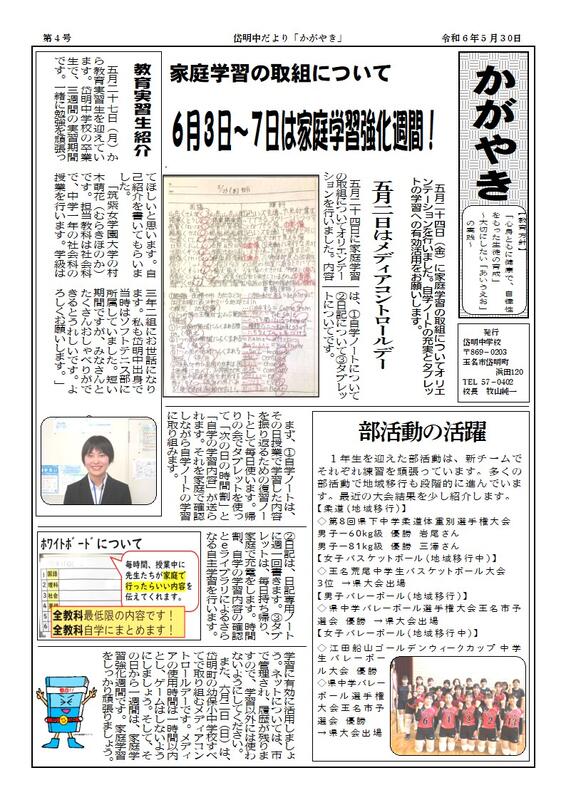 第4号
岱明中だより「かがやき」
令和6年5月30日
かがやき
【教育方針】
「心身ともに健康で、自律性
をもった生徒の育成」
～大切にしたい「あいうえお」
の実践～
発行
岱明中学校
〒869-0203
玉名市岱明町
浜田120
TEL 57-0402
校長 牧山純一
家庭学習の取組について
6月3日～7日は家庭学習強化週間!
五月二十四日（金）に家庭学習の取組についてオリエ
ンテーションを行いました。自学ノートの充実とタブレッ
トの学習への有効活用をお願いします。
五月二日はメディアコントロールデー
五月二十四日に家庭学習
の取組についてオリエンテー
ションを行いました。内容
は、①自学ノートについて
②日記について③タブレッ
トについてです。
まず、①自学ノートは、
その日授業で学習した内容
を振り返るための復習ノー
トとして毎日使います。帰
りの会でタブレットを使っ
て「次の日の時間割」と
「自学の学習内容」が送ら
れます。それを家庭で確認
しながら自学ノートの学習
に取り組みます。
②日記は、日記専用ノート
に週一回書きます。③タブ
レットは、毎日持ち帰り、
家庭で充電をします。時間
割、自学の学習内容の確認
とeライブラリによるさら
なる自主学習を行います。
学習に有効に活用しましょ
う。ネットについては、市
で管理され、履歴が残りま
すので、学習以外には使わ
ないようにしてください。
また、六月二日（日）は、
岱明町の幼保小中学校すべ
てで取り組むメディアコン
トロールデーです。メディ
アの使用時間は一時間以内
とし、ゲームはしないよう
にしましょう。そして、そ
の日から一週間は、家庭学
習強化週間です。家庭学習
をしっかり頑張りましょう。
教育実習生紹介
五月二十七日（月）か
ら教育実習生を迎えてい
ます。岱明中学校の卒業
生で、三週間の実習期間
です。一緒に勉強を頑張っ
てほしいと思います。自
己紹介を書いてもらいま
した。
「筑紫女学園大学の村
木萌花（むらきほのか）
です。担当教科は社会科
で、中学一年の社会科の
授業を行います。学級は
三年二組にお世話になり
ます。私も岱明中出身で
当時はソフトテニス部に
所属していました。短い
期間ですが、みなさんと
たくさんおしゃべりがで
きるとうれしいです。よ
ろしくお願いします。」
ﾎﾜｲﾄﾎﾞｰﾄﾞについて
1 国語
2 理科
3 社会
4
5
6
毎時間、授業中に
先生たちが家庭で
行ったらいい内容を
伝えてくれます。
全教科最低限の内容です！
全教科自学にまとめます！
部活動の活躍
1年生を迎えた部活動は、新チームで
それぞれ練習を頑張っています。多くの
部活動で地域移行も段階的に進んでいま
す。最近の大会結果を少し紹介します。
【柔道（地域移行）】
◇第8回県下中学柔道体重別選手権大会
男子－60kg級 優勝 岩尾さん
男子－81kg級 優勝 三浦さん
【女子バスケットボール（地域移行中）】
◇玉名荒尾中学生バスケットボール大会
3位 →県大会出場
【男子バレーボール（地域移行）】
◇県中学バレーボール選手権大会玉名市予
選会 優勝 →県大会出場
【女子バレーボール（地域移行中）】
◇江田船山ゴールデンウィークカップ 中学
生バレーボー
ル大会 優勝
◇県中学バレー
ボール選手権大
会玉名市予選会
優勝
→県大会出場